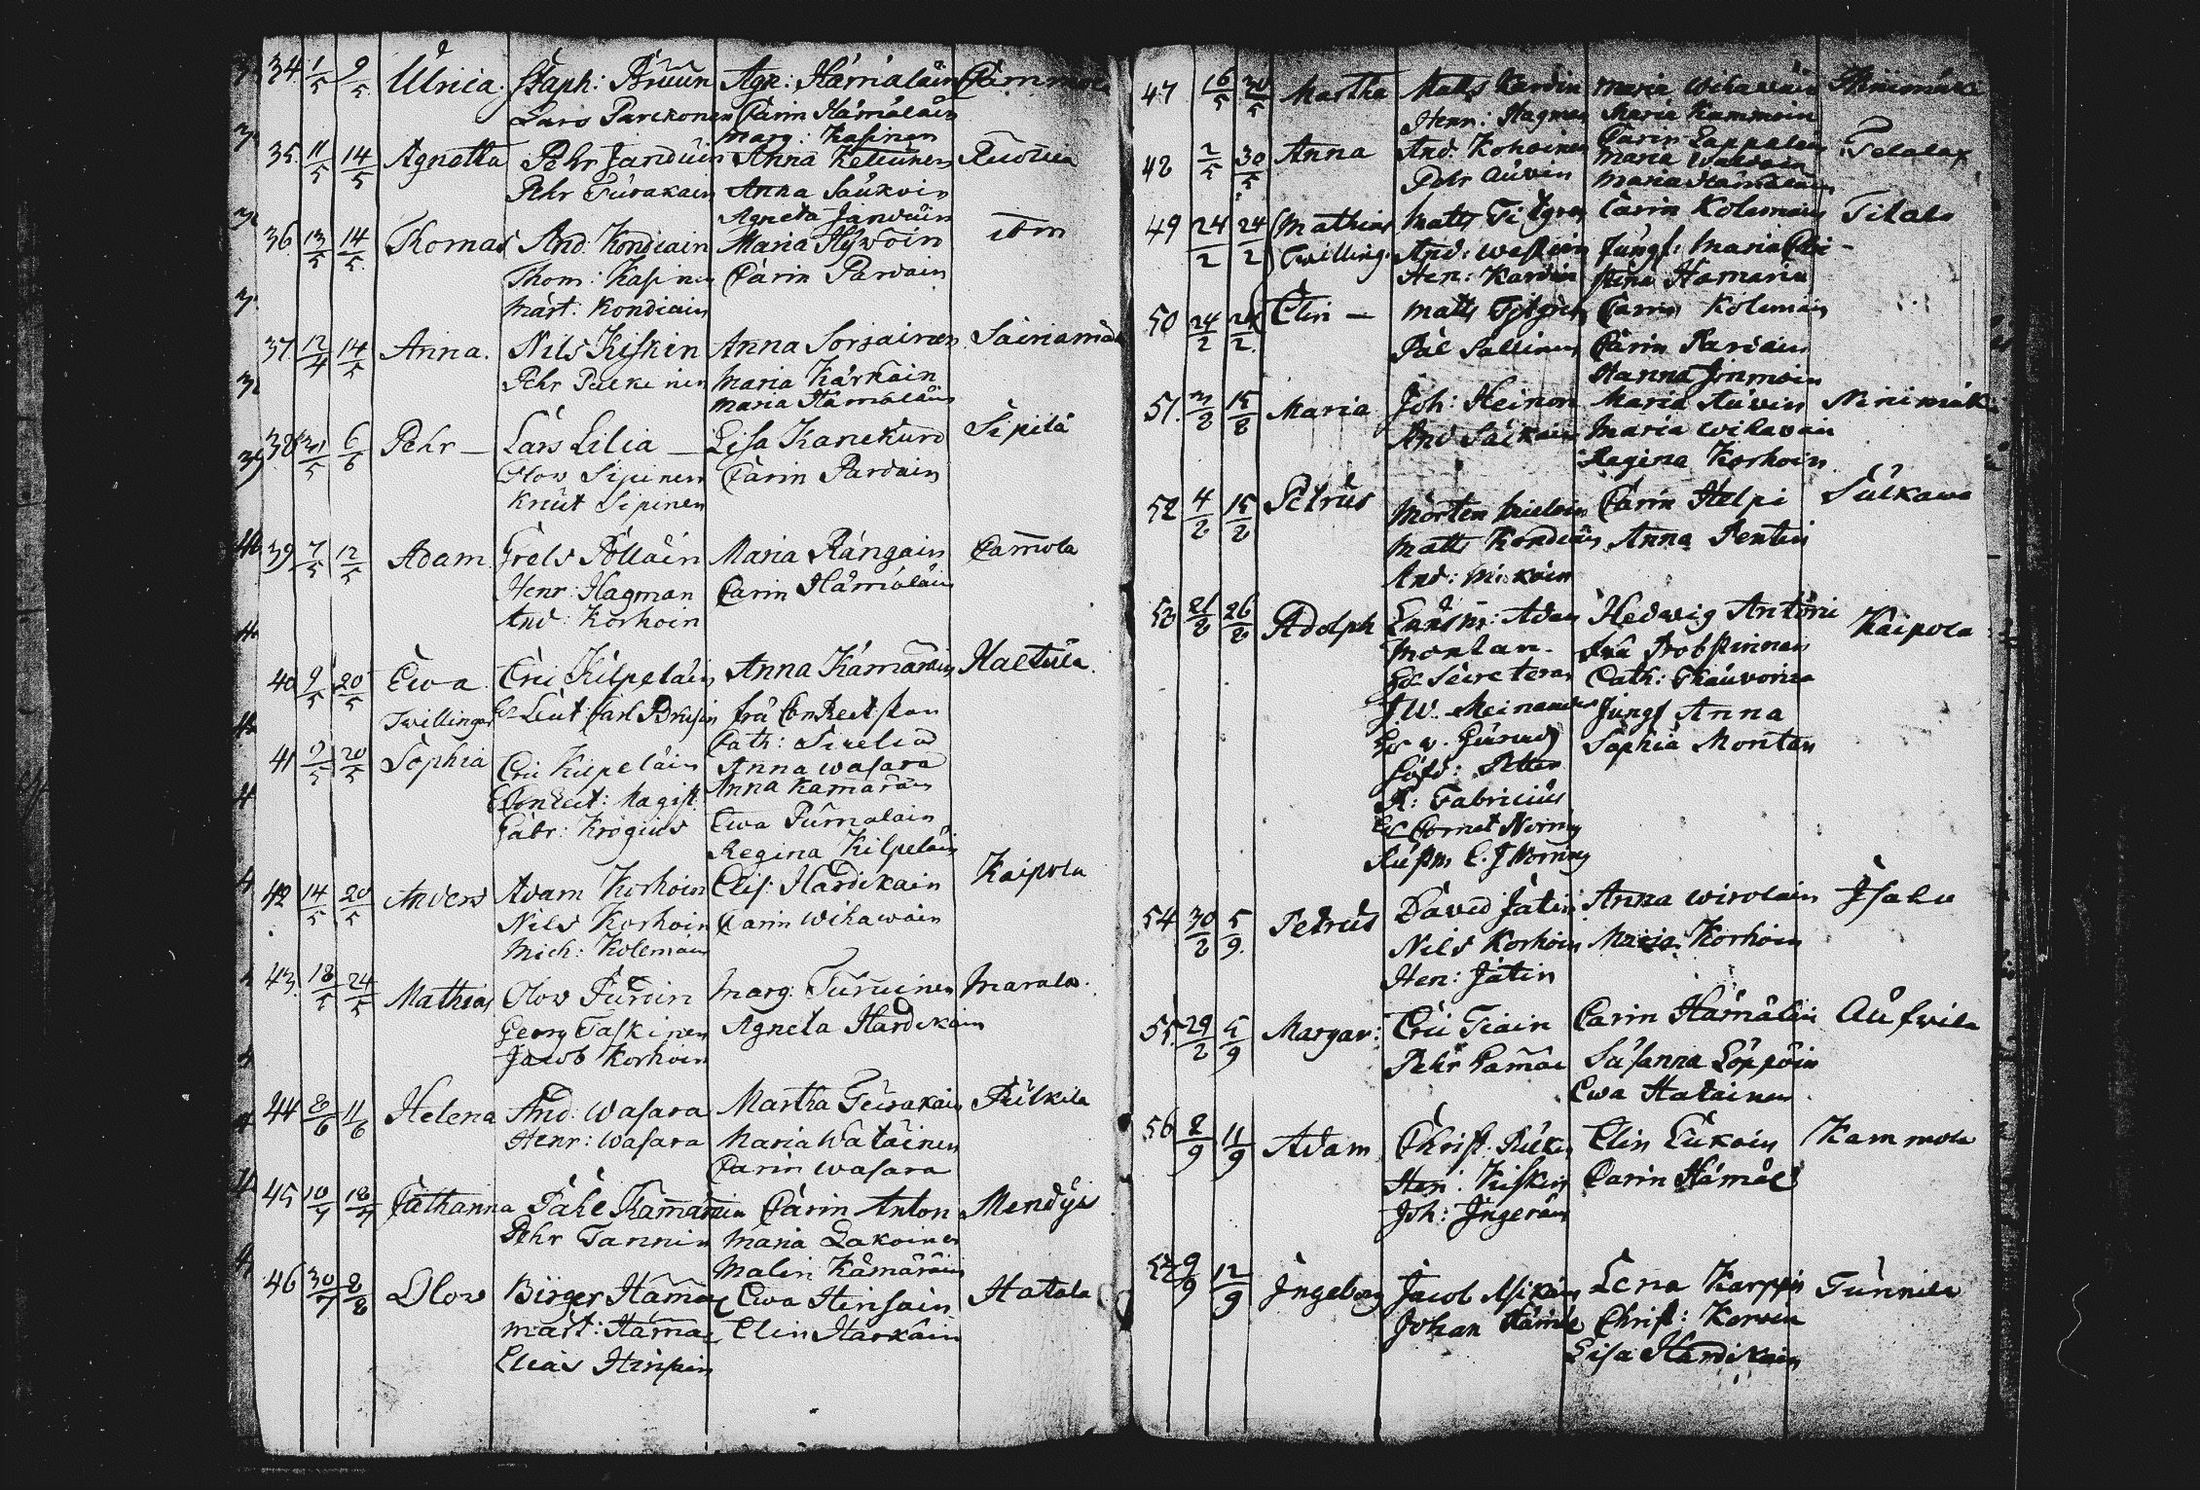 34 1/5 9/5 Ulrica Staph: Bruun Agn: Hämäläin Cammola
Lars Parckonen Carin Hämäläin
Marg: Kasinen
35 11/5 14/5 Agnetta Pehr Janduin Anna Kelluinen
Pehr Turakain Anna Saukoin
Agneta Janduin
36 13/5 14/5 Thomas And: Kondiain Maria Hywöin ibm
Thom: Kasinen Carin Pardain
Mårt: Kondiain
37 12/4 14/5 Anna Nils Kiskin Anna Sorsainen
Pehr Pulkinen Maria Kärkäin
Maria Hämäläin
38 31/5 6/6 Pehr — Lars Lilia — Lisa Kanekurd Sipilä
Olow Sipinen Carin Pardain
Knut Sipinen
39 7/5 12/5 Adam Grels Pölläin Maria Rångain Cammola
Henr: Hagman Carin Hämäläin
And: Korhoin
40 9/5 20/5 Ewa Eric Kilpeläin Anna Kämäräin Haltula
Twillingar Hr Leut: Carl Brusin frü ConRect:skan
Cath: Sirelia
41 9/5 20/5 Sophia Eric Kilpeläin Anna Wasara
ConRect: Magist: Anna Kamäräin
Gabr: Krogius Ewa Purnalain
Regina Kilpeläin
42 14/5 20/5 Anders Adam Korhoin Elis: Hardikain Kaipola
Nils Korhoin Carin Wihawain
Mich: Kolemain
43 18/5 24/5 Mathias Olow Purdin Marg: Turuinen Marala
Georg Taskinen Agneta Hardikain
Jacob Korhoin
44 8/6 11/6 Helena And: Wasara Martha Teirakain Pulkila
Henr: Wasara Maria Watainen
Carin Wasara
45 10/7 18/7 Cathanna Påhl Kämäräin Carin Anton Mendys
Pehr Tannin Maria Lakoinen
Malin Kämäräin
46 30/7 8/8 Olow Birger Hämäl Ewa Hinsain Hatala
Mårt: Hämäl Elin Harkäin
Elias Hinsain
47 16/5 30/5 Martha Matts Kardin Maria Wihawain Niinimäki
Henr: Hagman Maria Kammoin
Carin Lappalain
48 2/5 30/5 Anna And: Kohoinen Maria
Pehr Auvin Maria Hämäläin
49 24/2 24/2 Mathias Matts Titgren Carin Kolemain Titala
Twilling: And: Waskein Jungf: Maria Chri-
Hen: Kardin stina Hamarin
50 24/2 24/2 Elin — Matts Titgren Carin Kolemain
Pål Sallinen Carin Pardain
Hanna Jonmoin
51 3/8 15/8 Maria Joh: Heinon Maria Auvin Ninimäki
And Säikäin Maria Wihavain
Regina Korhoin
52 4/8 15/8 Petrus Mårten Carin Helpi Sulkawa
Matts Kondiain Anna Pentin
And: Miskäin
53 21/8 26/8 Adolph Länsm: Adam Hedwig Antoni Kaipola
Montan frü Probstinnan
Hr Secreteraren Cath: Thauvonia
J.W. Meinander Jungf Anna
Sophia Montan
R: Fabricius
Hr Cornet Norring
54 30/8 5/9 Petrus David Jätin Anna Wirolain Jsalu
Nils Korhoin Maria Korhoin
Hen: Jätin
55 29/8 5/9 Margar: Eric Tiain Carin Hämäläin Aufwila
Pehr Hämäl Susanna Löppöin
Ewa Hatainen
56 8/9 11/9 Adam Christ: Pulkin Elin Lukoin Kammola
Hen: Kiskin Carin Hämäl
Joh: Jngeräin
57 9/9 12/9 Jngeborg Jacob Asikain Lena Karppin Tunnila
Johan Hämäl Christ: Korven
Lisa Hardikain